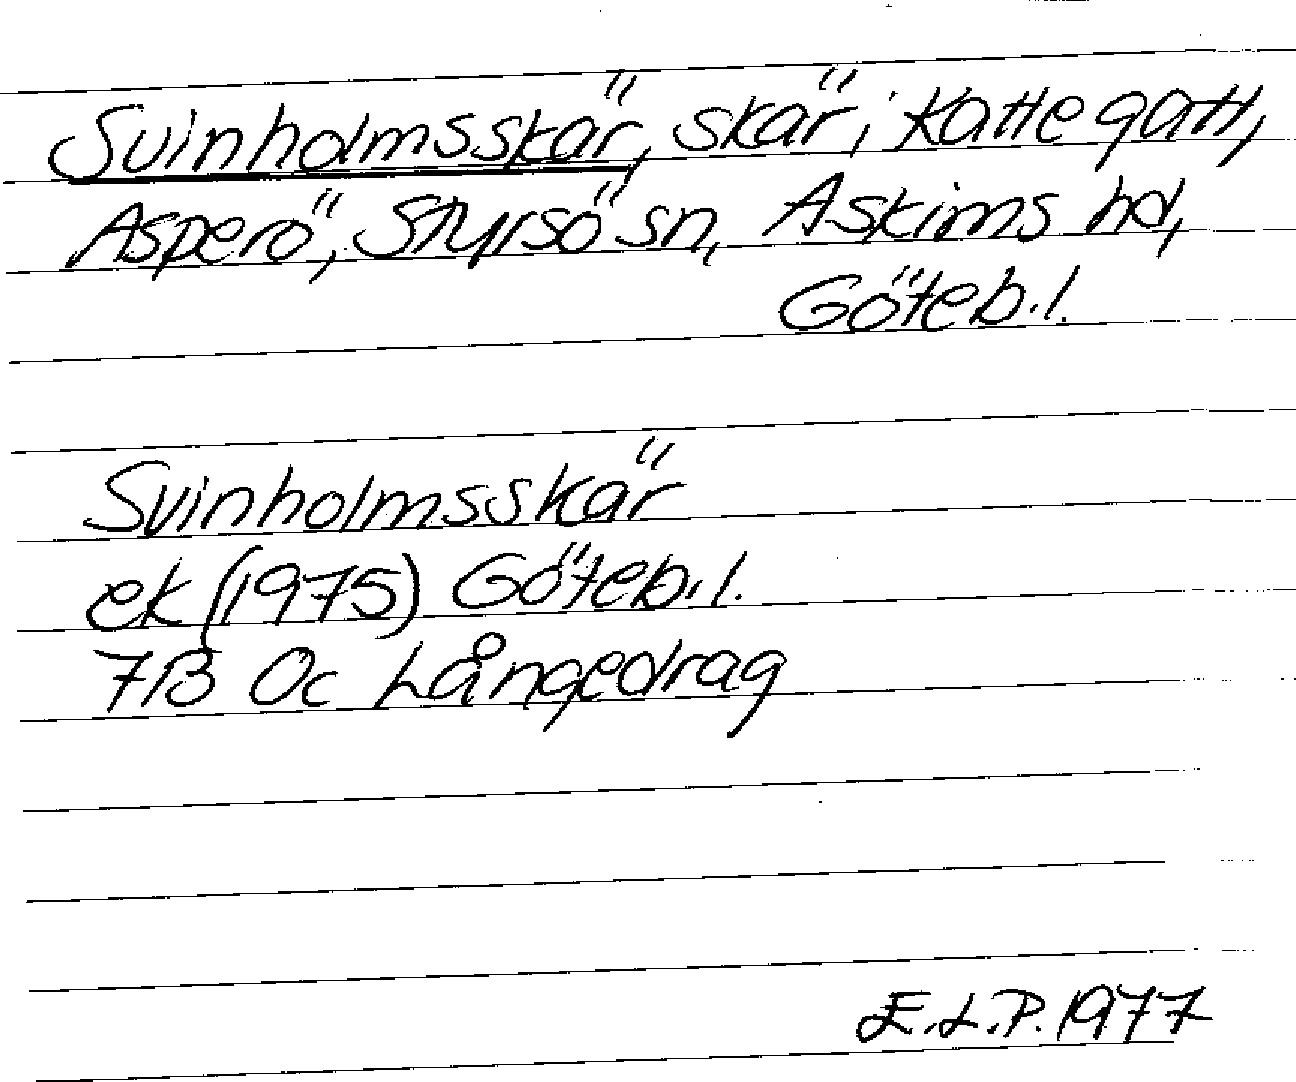 Svinholmsskär, skär, i Kattegatt,
Asperö, Styrsö sn, Askims hd,
Göteb.l.
Svinholmsskär
ek (1975) Göteb.l.
7B 0c Långedrag
E.L.P. 1977